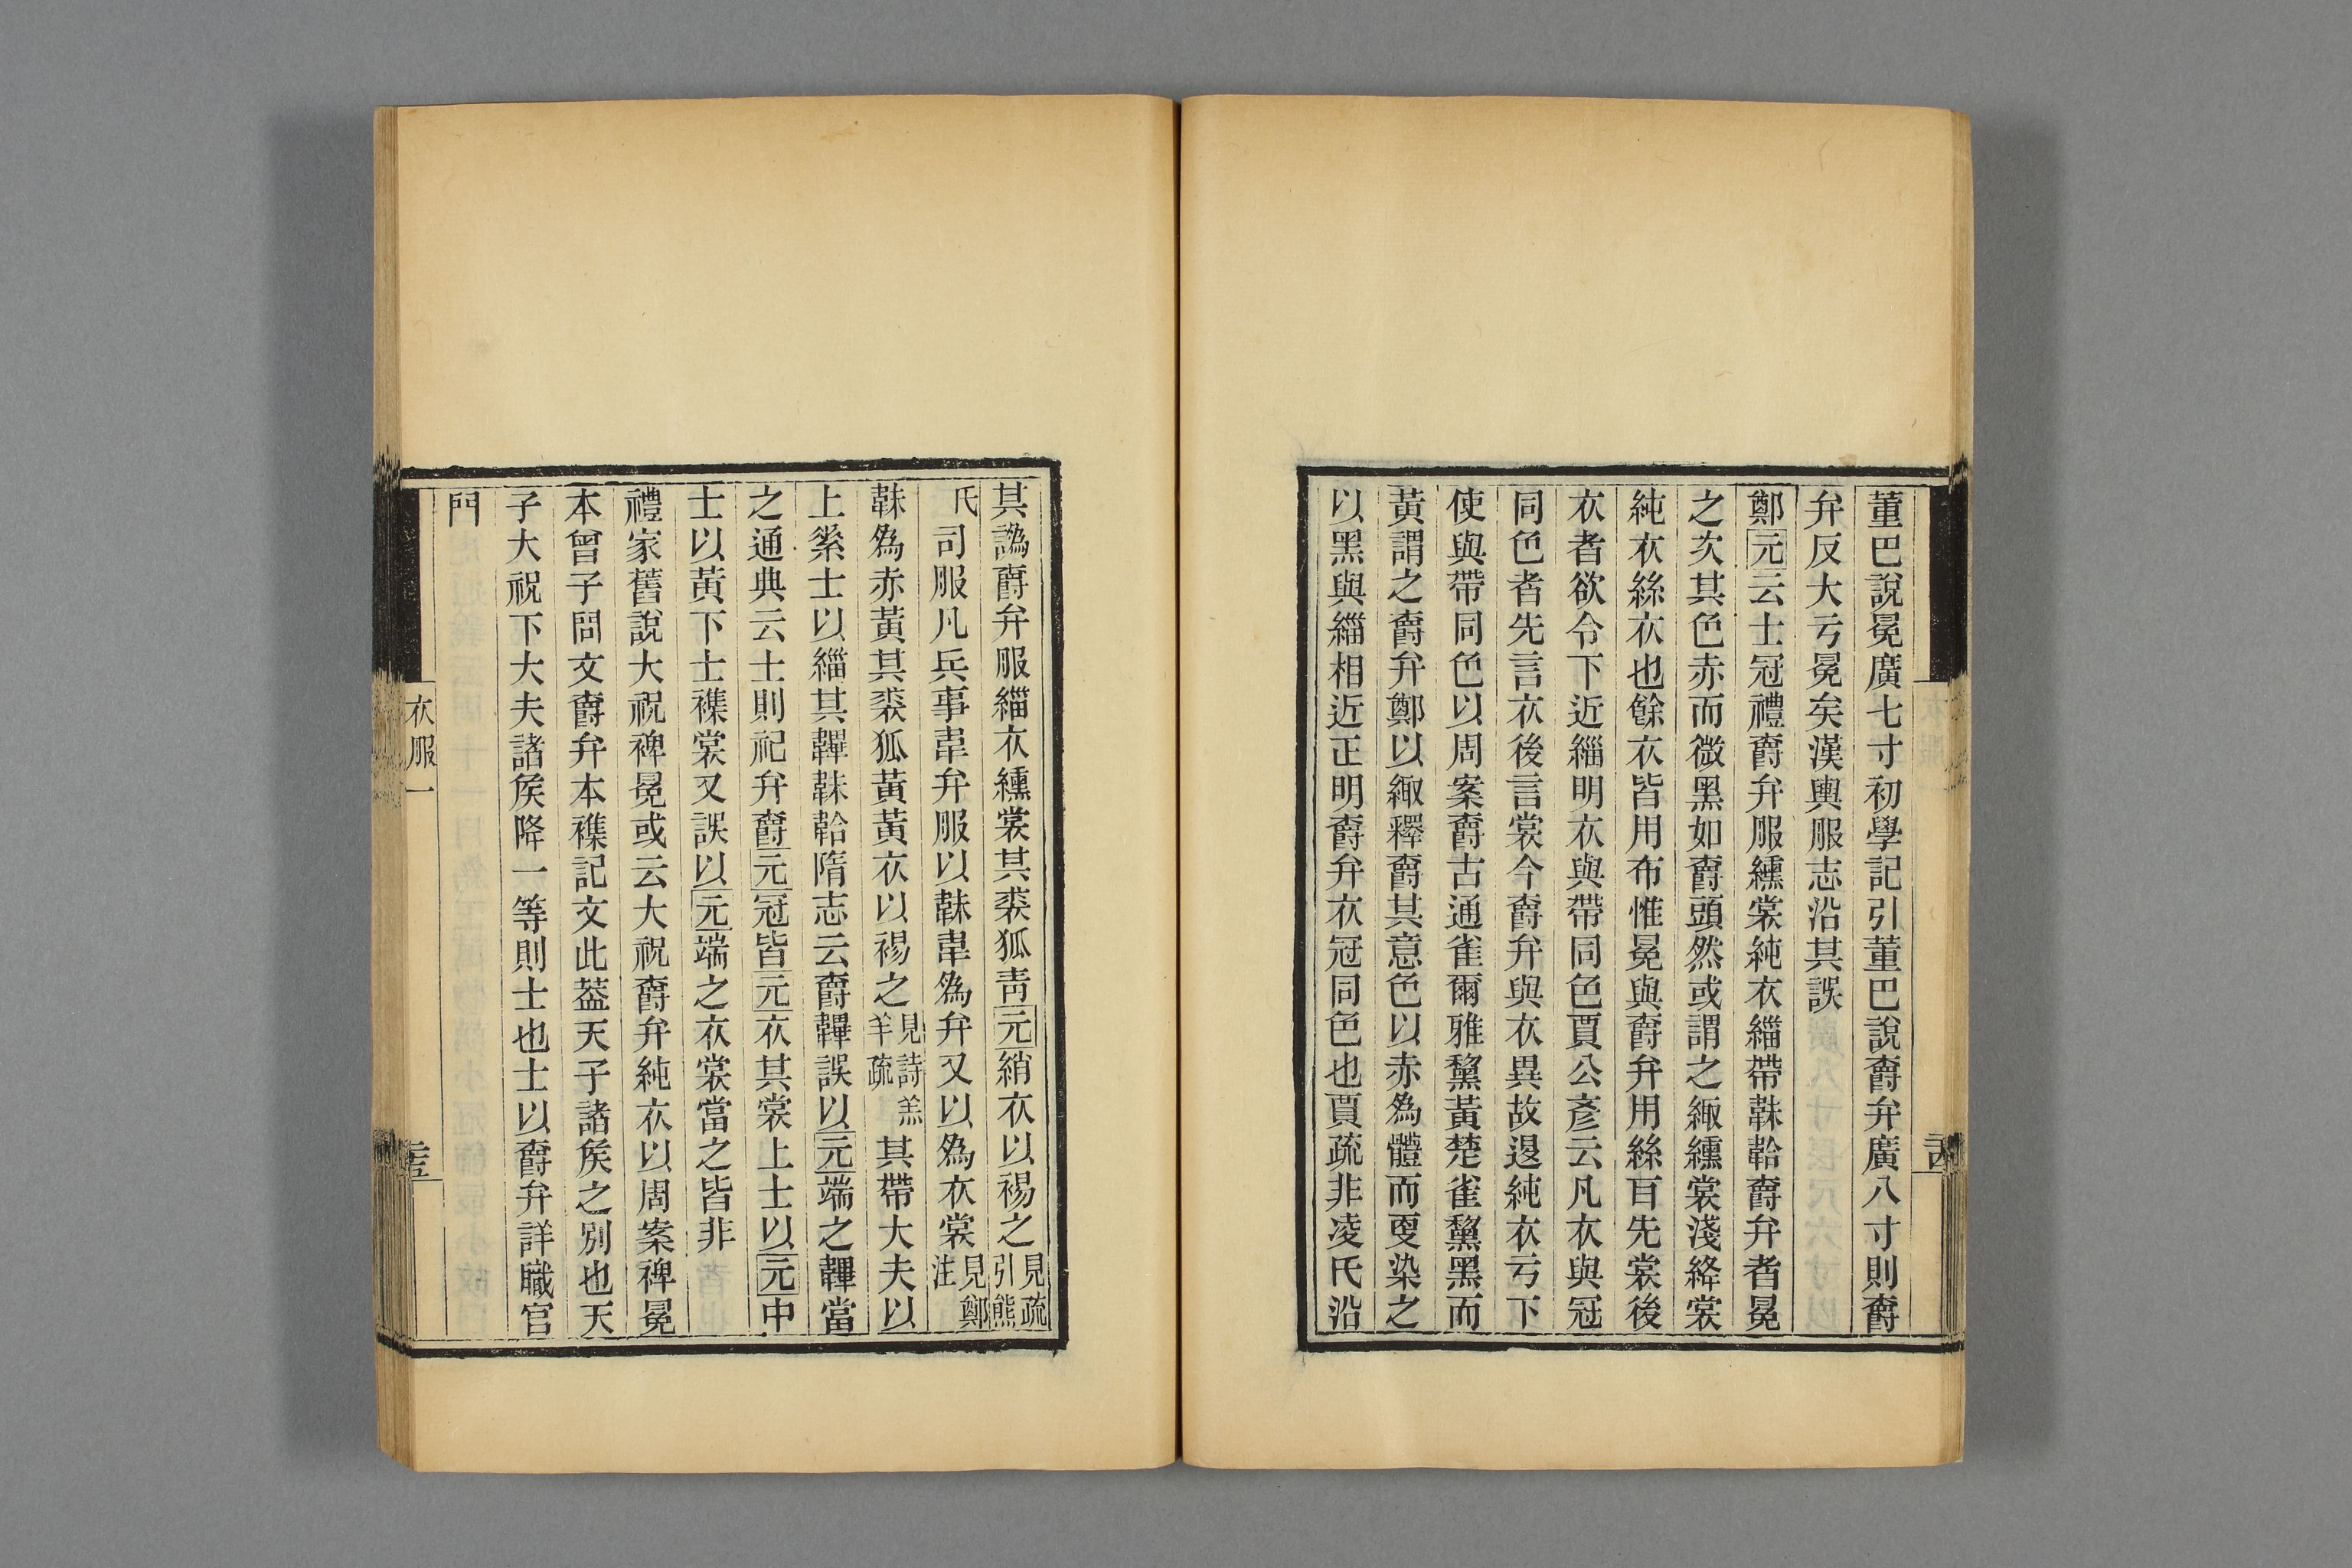 董巴說冕廣七寸初學記引董巴說爵弁廣八寸則爵
弁反大亏冕矣漢輿服志沿其誤
鄭元云士冠禮爵弁服纁裳純衣緇帶韎韐爵弁者冕
之次其色赤而微黑如爵頭然或謂之緅纁裳淺絳裳
純衣絲衣也餘衣皆用布惟冕與爵弁用絲百先裳後
衣者欲令下近緇明衣與帶同色賈公彥云凡衣與冠
同色者先言衣後言裳今爵弁與衣異故退純衣亏下
使與帶同色以周案爵古通雀爾雅鵹黃楚雀鵹黑而
黃謂之爵弁鄭以緅釋爵其意色以赤為體而更染之
以黑與緇相近正明爵弁衣冠同色也賈疏非凌氏沿
其譌爵弁服緇衣纁裳其裘狐靑元綃衣以裼之見疏引熊
氏司服凡兵事韋弁服以韎韋為弁又以為衣裳見鄭注
韎為赤黃其裘狐黃黃衣以裼之見詩羔羊疏其帶大夫以
上紫士以緇其韠韎韐隋志云爵韠誤以元端之韠當
之通典云士則祀弁爵元冠皆元衣其裳上士以元中
士以黃下士襍裳又誤以元端之衣裳當之皆非
禮家舊說大祝裨冕或云大祝爵弁純衣以周案裨冕
本曾子問文爵弁本襍記文此葢天子諸矦之別也天
子大祝下大夫諸矦降一等則士也士以爵弁詳職官
門
衣服一